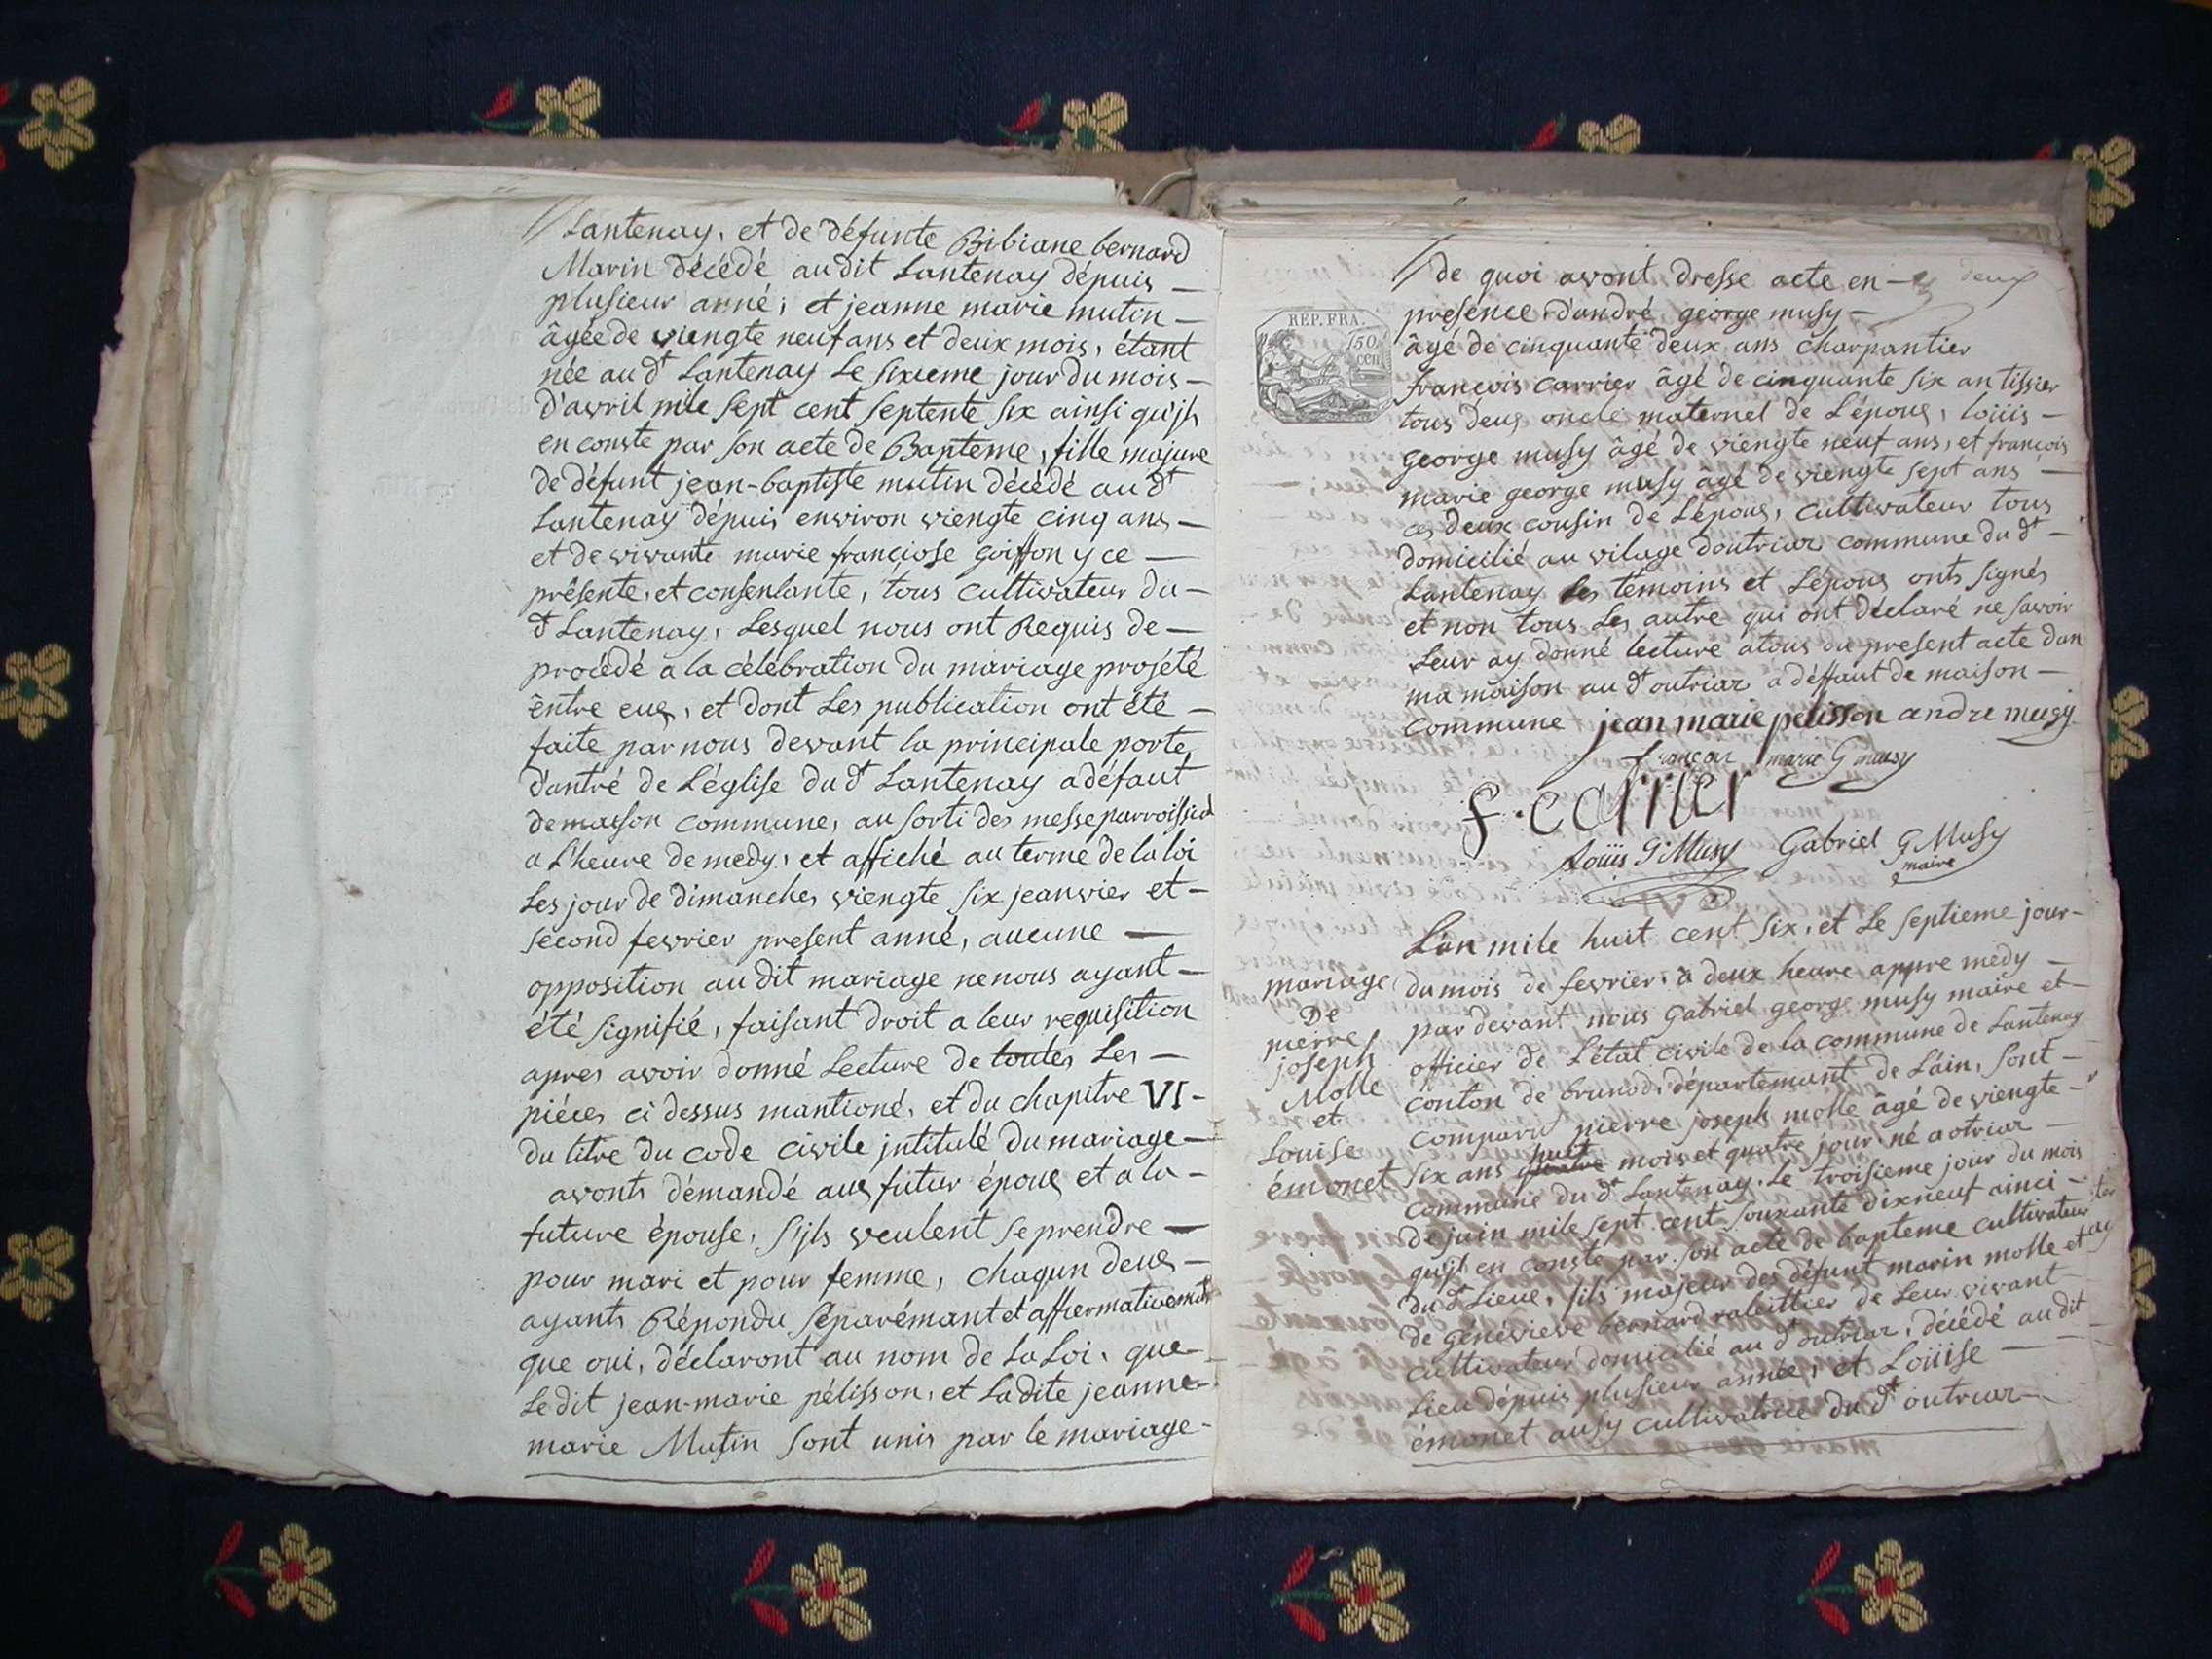 Lantenay, et de défunte Bibiane bernard
Marin décédé audit Lantenay dépuis
plusieur anné, et jeanne marie mutin
âgée de viengte neuf ans et deux mois, étant
née au dt Lantenay Le sixieme jour du mois
d'avril mile sept cent septente six ainsi qu'jls
en conste par son acte de Bapteme, fille majure
de défunt jean-baptiste mutin décédé au dt
Lantenay dépuis environ viengte cinq ans
et de vivante marie françiose goiffon y ce
présente, et consentante, tous cultivateur du
dt Lantenay, Lesquel nous ont Requis de
procédé a la célébration du mariage projété
êntre eus, et dont Les publication ont été
faite par nous devant la principale porte
d'antré de L'église du dt Lantenay a défaut
de maison commune, au sorti des messe parroissial
a l'heure de medy, et affiché au terme de la loi
Les jour de dimanches viengte six jeanvier et
second fevrier present anné, aucune
opposition au dit mariage ne nous ayant
été signifié, faisant droit a leur requisition
apres avoir donné Lecture de toutes Les
piéces ci dessus mantioné, et du chapitre VI
du titre du code civile jntitulé du mariage
avonts démandé aus futur épous et a la
future épouse, s'jls veulent se prendre
pour mari et pour femme, chaqun deus
ayants Répondu séparémant et affiermativement
que oui, déclaront au nom de La Loi, que
Le dit jean-marie pélisson, et La dite jeanne
marie Mutin sont unis par le mariage
deux
de quoi avont dresse acte en
presence d'andré george musy
âgé de cinquante deux ans charpantier
francois carrier âgé de cinquante six an tissier
tous deus oncle maternel de L'épous, loüis
george musy âgé de viengte neuf ans, et francois
marie george musy âgé de viengte sept ans
ces deux cousin de L'épous, cultivateur tous
domicilié au vilage doutriaz commune du dt
Lantenay Les témoins et L'épous onts signés
et non tous Les autre qui ont déclaré ne savoir
Leur ay donné lecture a tous du present acte dan
ma maison au dt outriaz a déffaut de maison
commune jean marie pelisson andre musy
REP. FRA.
50 cen
françoi marie G musy
f. carrier
Loüis G Musy Gabriel G Musy
maire
L'an mile huit cent six, et Le septieme jour
du mois de fevrier, a deux heure appre medy
par devant nous Gabriel george musy maire et
officier de L'état civile de la commune de Lantenay
conton de brunod, département de L'ain, sont
comparu pierre joseph molle âgé de viengte
six ans quatre huit mois et quatre jour, né a otriaz
commune du dt Lantenay, Le troisieme jour du mois
de juin mile sept cent souxante dixneuf ainci
qu'jl en conste par son acte de bapteme cultivateur
du dt Lieue, fils majeur des défunt marin molle et
de génévieve bernard de Leur vivant
cultivateur domicilié au dt outriaz, décédé au dit
Lieu dépuis plusieur année, et Loüise
émonet ausy cultivatrice du dt outriaz
mariage
De
pierre
joseph
Molle
et
Louise
émonet